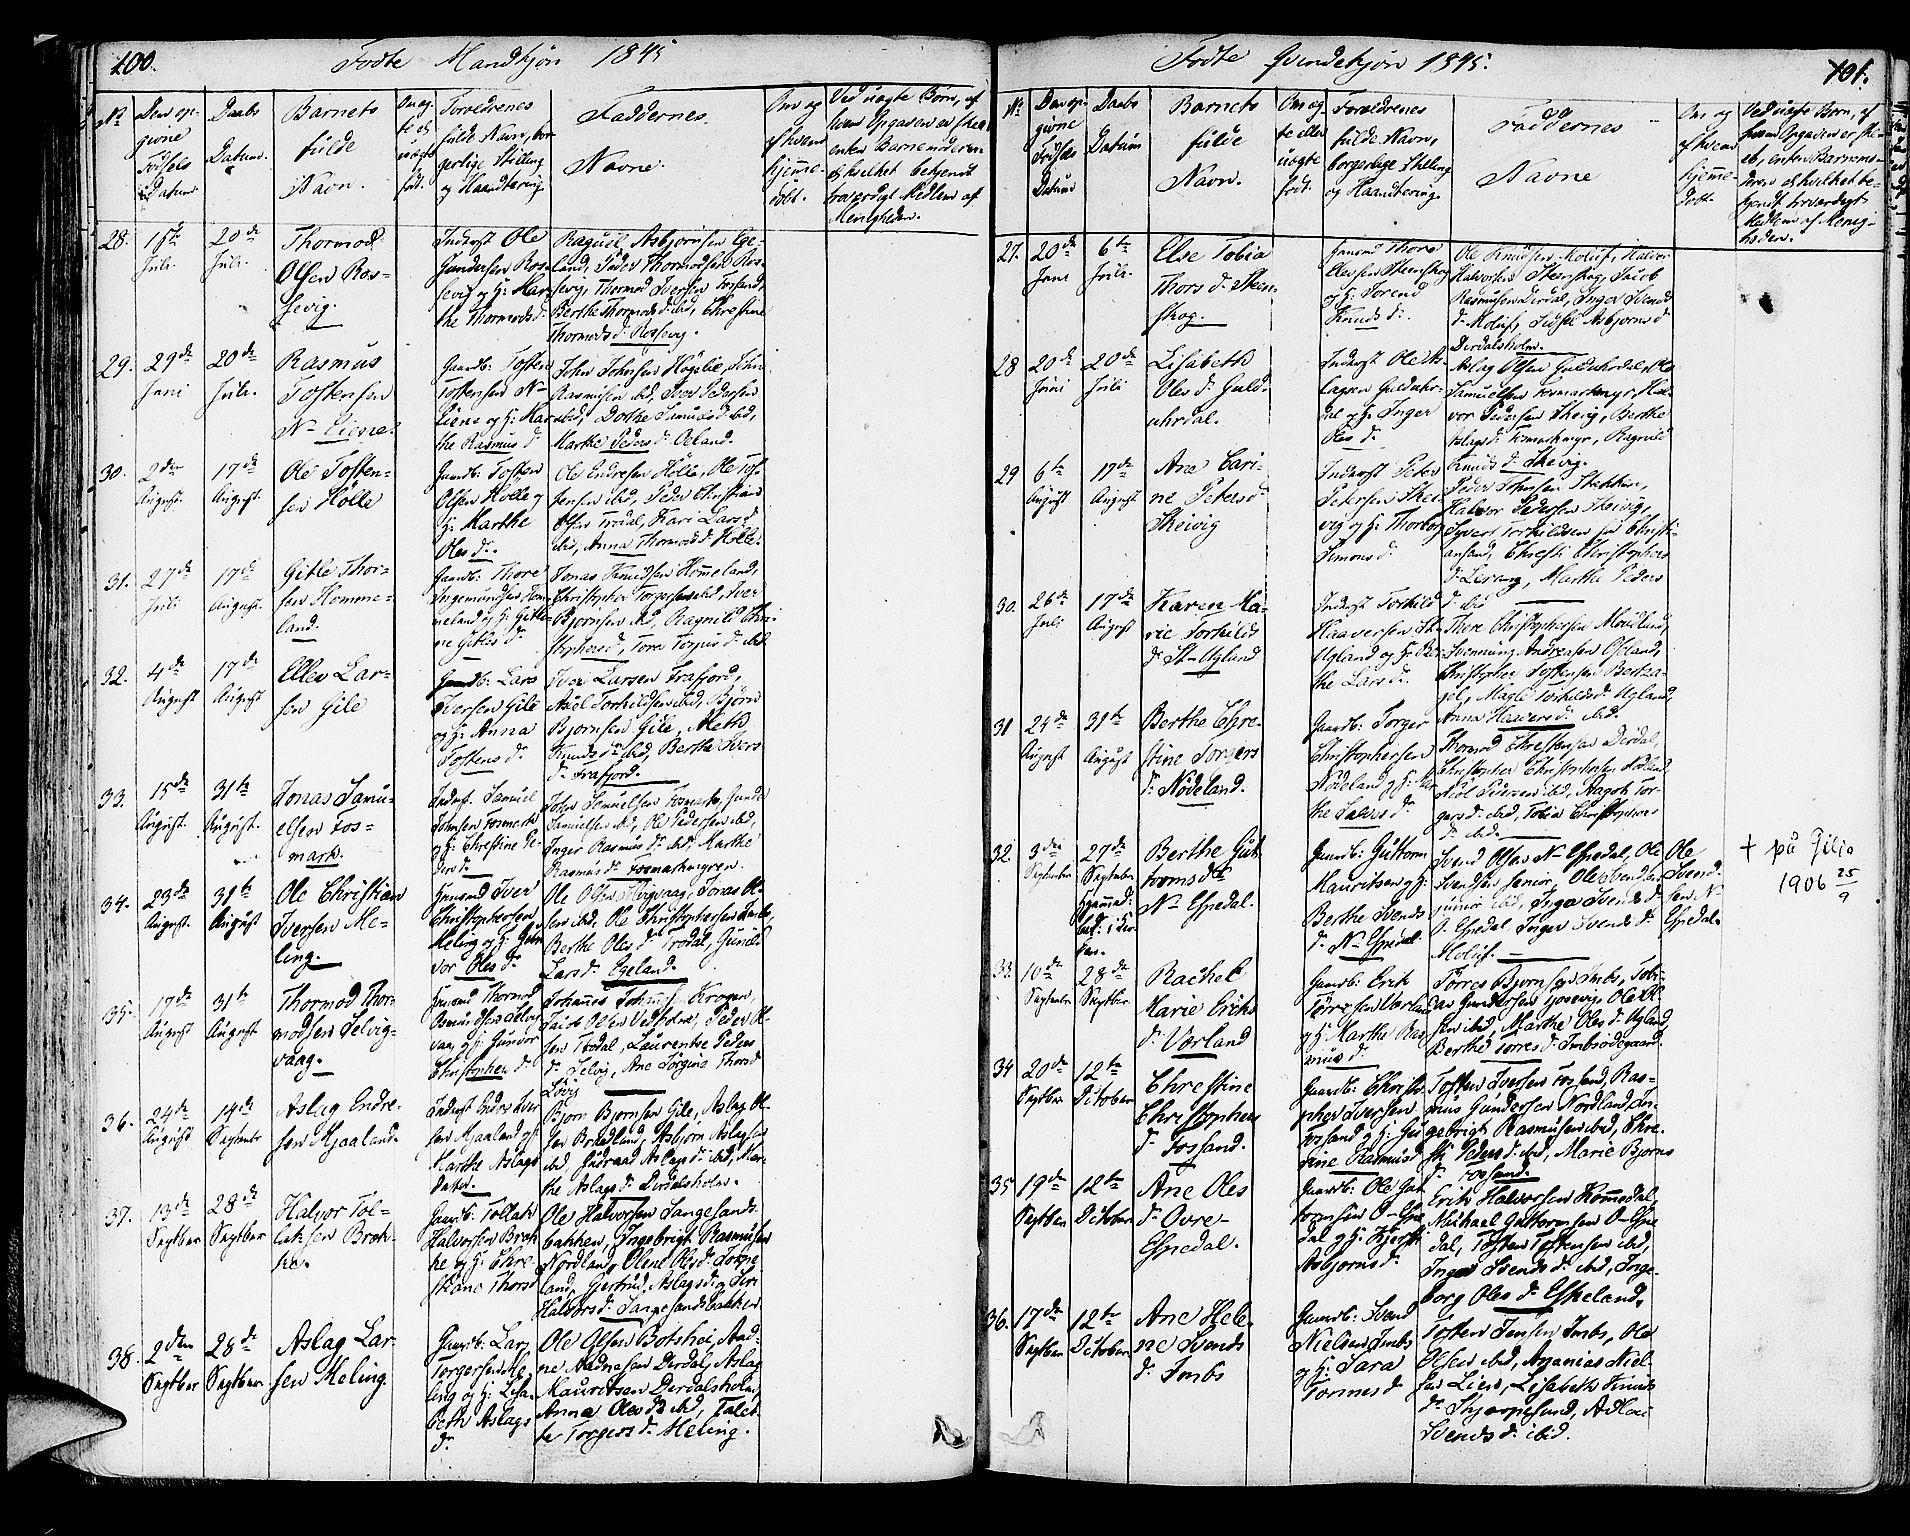 100.
Fødte Mandkjøn 1845
No
Den op-
givne
Fødsels
Datum
Daabs
Datum.
Barnets
fulde
Navn.
Om æg-
te el.
uægte
født.
Forældrenes
fulde Navn, bor-
gerlige Stilling
og Haandtering
Faddernes
Navne.
Om og
af hvem
hjemme-
døbt.
Ved uægte Børn, af
hvem Opgaven er skeet
enten Barnemoderen
og hvilket bekjendt
troværdigt Medlem af
Menigheden.
28.
15de
Juli
20de
Juli.
Thormod
Olsen Ros-
sevig.
Inderst Ole
Gundersen Ros-
sevig og H: Mar-
the Thormods d.
Raguel Asbjørnsen Ege-
land, Peder Thormodsen Ros-
sevig, Thormod Iversen Fossand,
Berthe Thormods d. ibid, Christine
Thormods d. Rossevig.
29.
29de
Juni
20de
Juli.
Rasmus
Tostensen
N. Liene.
Gaardb: Tosten
Tostensen N-
Liene og H: Mar-
the Rasmus d.
John Johnsen Høgelie, John
Rasmusen ibid, Iver Pedersen
ibid, Dorthe Simons d. ibid,
Marthe Peders d. Øeland.
30.
2den
August.
17de
August.
Ole Tosten-
sen Hølle
Gaardb: Tosten
Olsen Hølle og
H: Marthe
Oles d.
Ole Endresen Hølle, Ole Tos-
tensen ibid, Peder Christian
Olsen Trødal, Kari Lars d.
ibid, Anna Thormods d. Hølle.
31.
27de
Juli
17de
August.
Gitle Thor-
sen Homme-
land.
Gaardb: Thore
Ingemundsen Hom-
meland og H: Gitle-
ne Gitles d.
Jonas Knudsen Hommeland,
Christopher Torgersen ibid, Iver
Bjørnsen ibid, Ragnild Chri-
stophers d, Tore Torgers d. ibid.
32.
4de
August
17de
August
Ellev Lar-
sen Gile
Gaardb: Lars
Iversen Gile
og H: Anna
Tostens d.
Iver Larsen Frafjord,
Axel Torkildsen ibid, Bjørn
Bjørnsen Gile, Mette
Knuds d. ibid, Berthe Ivers
d. Frafjord.
33.
15de
August.
31te
August.
Jonas Samu-
elsen Fos-
mark.
Inderst. Samuel
Johnsen Fosmark
og H: Christine Pe-
ders d.
John Samuelsen Fosmark, Gunder
Samuelsen ibid, Ole Pedersen ibid,
Inger Rasmus d. ibid, Marthe
Rasmus d. Fosmarkmyren.
34.
23de
August.
31te
August.
Ole Christian
Iversen Me-
ling.
Huusmd Iver
Christophersen
Meling og H: Gun-
vor Oles d.
Ole Olsen Selvigvaag, Jonas Ol-
sen ibid, Ole Christophersen
Berthe Oles d. Trødal, Gunild
Lars d. Egeland.
35.
17de
August
31te
August
Thormod Thor-
modsen Selvig-
vaag.
Huusmd Thormod
Osmundsen Selvig-
vaag og H: Gunvor
Christophers d.
Johannes Krogen,
Jacob Olsen Peder Ol-
sen Trødal, Laurentse Peders
d. Selvig, Ane Jørgine Thors d
Løvig
36.
24de
August
14de
Septembr
Aslag Endre-
sen Mjaaland.
Inderst Endre Iver
sen Mjaaland og H:
Marthe Aslags
datter.
Bjørn Bjørnsen Gile, Aslag Ol-
sen Bradland, Asbjørn Aslagsen
ibid, Gudraad Aslags d. ibid, Mar-
the Aslags d. Dirdalsholm.
37.
13de
Septbr
28de
Septbr
Halvor Tol-
laksen Bræk-
ke.
Gaardb: Tollak
Halvorsen Bræk-
ke og H: Chri-
stiane Thors d
Ole Halvorsen Sangesand-
bakken, Ingebrigt Rasmusen
Nordland, Olene Oles d.
land, Gjertrud Aslags d. og Siri
Halvors d. Sangesandsbakken.
38.
2den
Septbr
28de
Septbr
Aslag Lar-
sen Meling.
Gaardb: Lars
Torgersen Me-
ling og H: Lisa-
beth Aslags
d.
Ole Olsen Botshei, Aad-
ne Aadnesen Dirdal, Aslag
Mauritsen Dirdalsholm,
Anna Oles d. ibid,
Torgers d. Meling.
101.
Fødte Qvindekjøn 1845.
No
Den op-
givne
Fødsels
Datum
Daabs
Datum
Barnets
fulde
Navn.
Om æg-
te eller
uægte
født.
Forældrenes
fulde Navn,
borgerlige Stilling
og Haandtering.
Faddernes
Navne
Om og
af hvem
hjemme-
døbt.
Ved uægte Børn, af
hvem Opgaven er ske-
et, enten Barnemo-
deren og hvilket be-
kjendt troværdigt
Medlem af Menig-
heden.
27.
20de
Juni
6te
Juli.
Else Tobia
Thors d. Steen-
skog.
Huusmd Thore
Steenskog
og H: Torend
Knuds d.
Ole Knudsen Moluf, Halvor
Halvorsen Steenskog, Jacob
Rasmusen Dirdal, Inger Svends
d. Moluf, Sidsel Asbjørns d
Dirdalsholm.
28
20de
Juni
20de
Juli
Lisabeth
Oles d. Guld-
uhrdal.
Inderst Ole As-
lagsen Gulduhr-
dal og H: Inger
Oles d.
Aslag Olsen Gulduhrdal, Ole
Samuelsen Fosmarkmyr, Hal-
vor Pedersen Skeivig, Berthe
Aslags d. Fosmarkmyr, Ragnild
Knuds d. Skeivig.
29
6te
August
17de
August
Ane Cari-
ne Peters d.
Skeivig
Inderst Peder
Petersen Skei-
vig og H: Thorborg
Simons d.
Peder Johnsen Stokken,
Halvor Pedersen Skeivig,
Syvert Torkildsen fra Christi-
ansand, Christi Christophers
d. Lerang, Marthe Peders
d. ibid
30.
26de
Juli
17de
August
Karen Ma-
rie Torkilds
d. St-Ugland
Inderst Torkild
Haaversen St-
Ugland og H: Ber-
the Lars d.
Thore Christophersen Moudland,
Svennung Andersen Øfland,
Christopher Tostensen Bertza-
gel, Magle Torkilds d. Ugland,
Anna Haavers d. ibid.
31
24de
August
31te
August
Berthe Chri-
stine Torgers
d. Nødeland.
Gaardb: Torger
Christophersen
Nødeland og H: Mar-
the Salves d.
Thormod Christensen Dirdal,
Christopher Christophersen Nødland,
Niel Pedersen ibid, Aagot Tor-
gers d. ibid, Tobia Christophers
d. ibid.
32.
3die
Septembr
27de
Septembr
hjemmed:
bekr: i Kir-
ken.
Berthe Gut-
torms d
N. Espedal.
Gaardb: Guttorm
Mauritsen og H:
Berthe Svends
d. N. Espedal.
Svend Olsen N. Espedal, Ole
Svendsen senior, Ole Svendsen
junior ibid, Inger Svends d.
Ø. Espedal, Inger Svends d.
Moluf.
Ole
Svend-
sen N.
Espedal.
† på Gilja
1906 25/9
33
10de
Septembr
28de
Septbr.
Rachel
Marie Eriks
d. Vorland
Gaardb: Erik
Tørresen Vorland
og H: Marthe Ras-
mus d.
Tørres Bjørnsen Imbs, Tobi-
as Gundersen Gjosevig, Ole Ol-
sen ibid, Marthe Oles d. Ugland,
Berthe Tørres d. Imbsødegaard.
34
20de
Septbr.
12te
October
Christine
Christophers
d. Fossand.
Gaardb: Christo-
pher Iversen
Fossand og H: Gu-
rine Rasmus d
Tosten Iversen Fossand, Ras-
mus Gundersen Nordland, In-
gebrigt Rasmusen ibid, Chri-
sti Peders d. ibid, Marie Bjørns
d. Fossand.
35
19de
Septbr
12te
October
Ane Oles
d. Øvre-
Espedal.
Gaardb: Ole Gut-
tormsen Ø-Espe-
dal og H: Kjersti
Asbjørns d.
Erik Halvorsen Rommedal,
Michael Guttormsen Ø-Espe
dal, Tosten Tostensen ibid,
Inger Svends d. ibid, Inge-
borg Oles d. Eskeland.
36.
17de
Septbr
12te
October
Ane Hele-
ne Svends
d. Imbs
Gaardb: Svend
Nielsen Imbs
og H: Sara
Tormes d
Tosten Jensen Imbs, Ole
Olsen ibid, Ananias Niel-
sen Lien, Lisabeth Knuds
d.
Svends d. ibid.